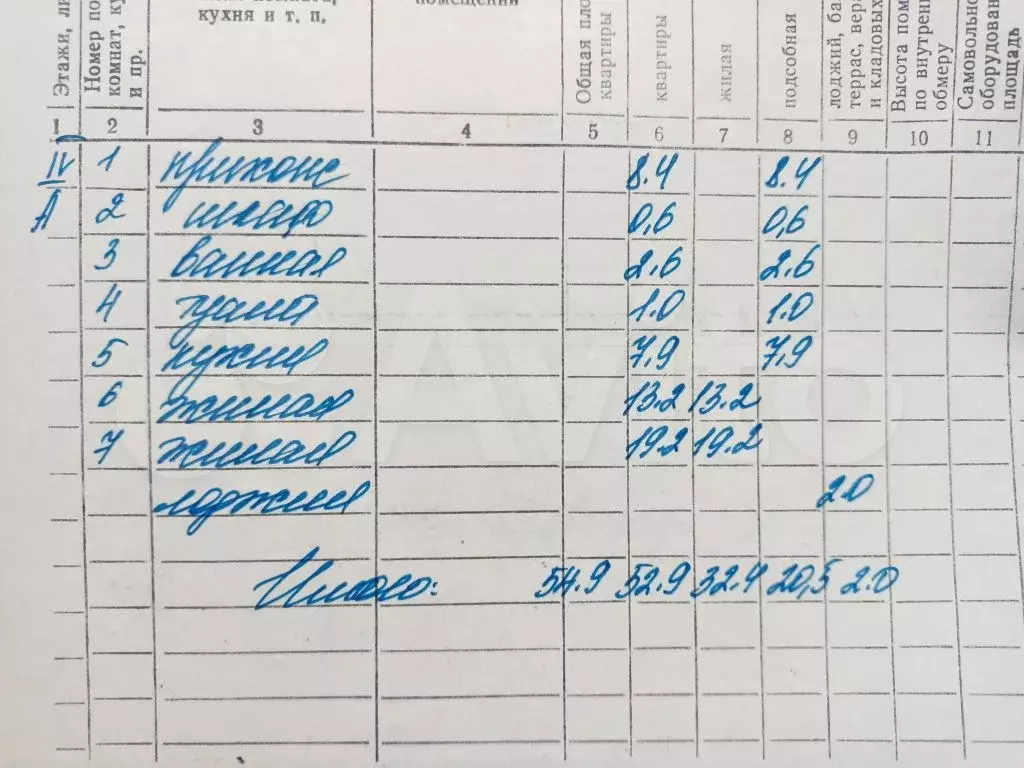 Этажи, ли
Номер по
комнат, ку
и пр.
кухня и т. п.
помещений
Общая пло
квартиры
квартиры
жилая
подсобная
лоджий, ба
террас, вера
и кладовых
Высота пом
по внутрен
обмеру
Самовольно
оборудован
площадь
1 2 3 4 5 6 7 8 9 10 11
IV 1 прихож 8.4 8.4
А 2 шкаф 0,6 0,6
3 ванная 2.6 2.6
4 1.0 1.0
5 кухня 7,9 7,9
6 жилая 13.2 13.2
7 жилая 19.2 19.2
лоджия 2.0
Итого: 54.9 52.9 32.4 20,5 2.0
Avito